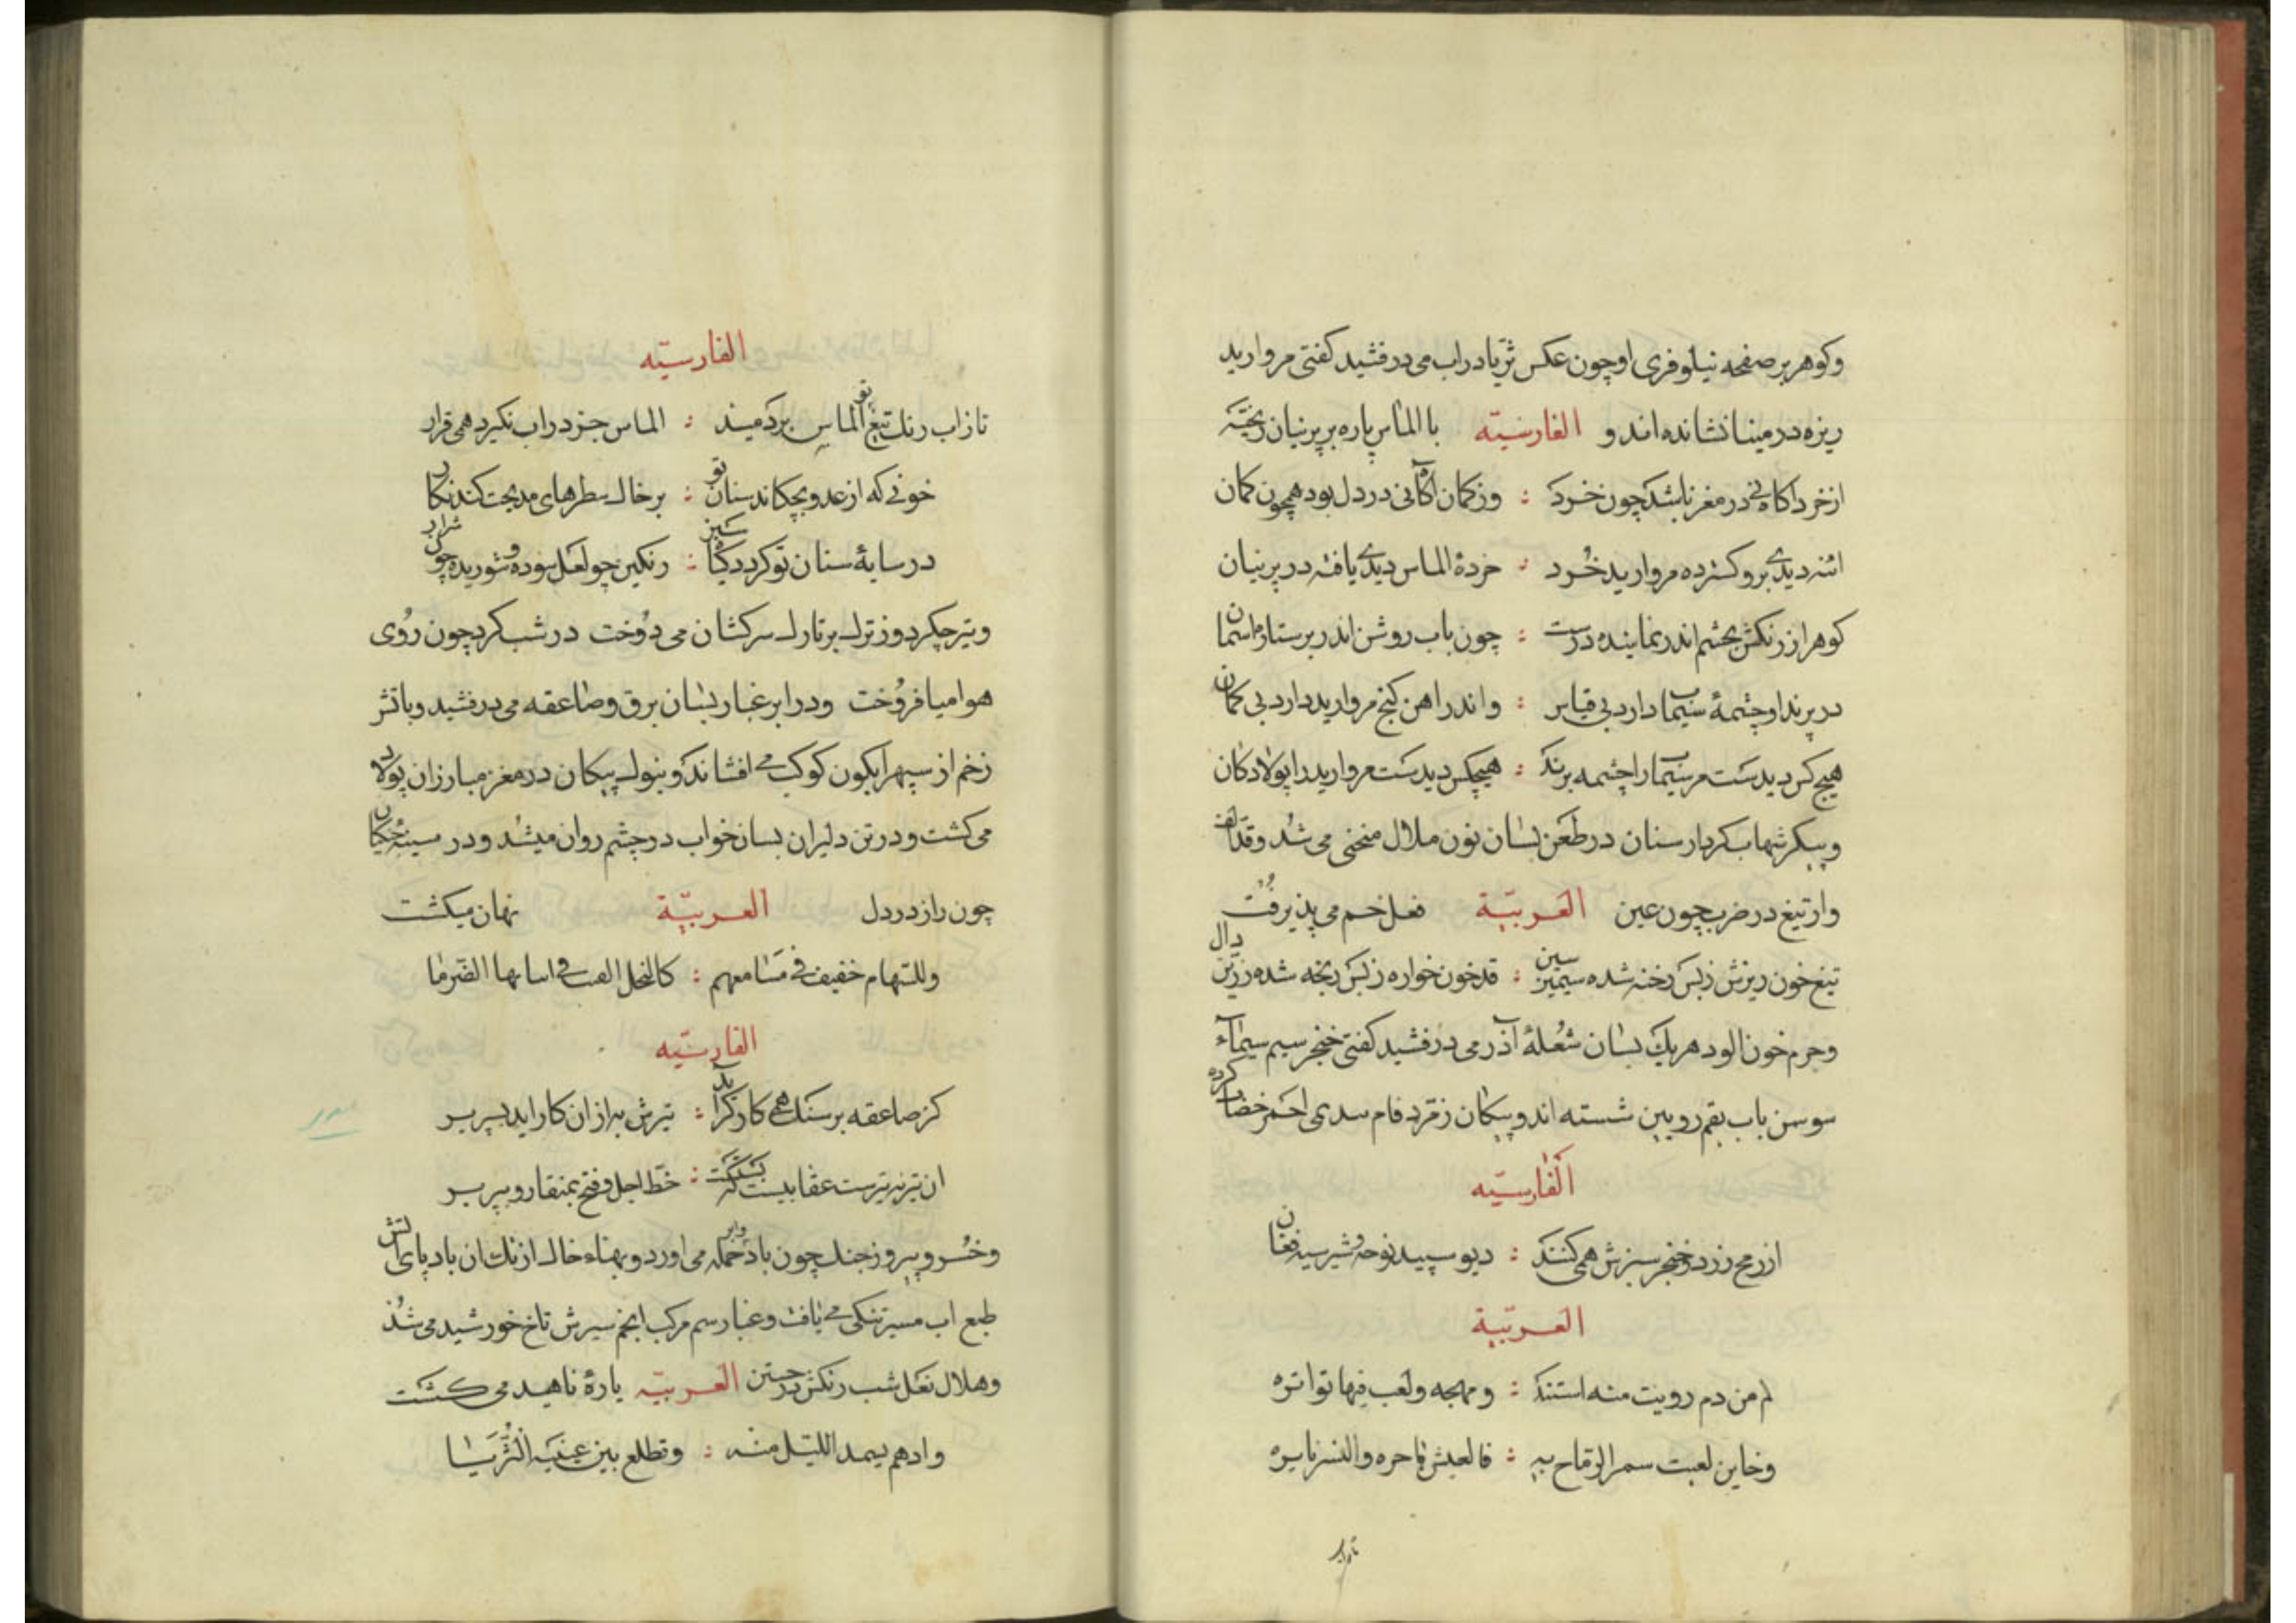 وکوهر بر صفحه نیلوفری او چون عکس ثریا در اب می درفشید کفتی مروارید
ریزه در مینا نشانده اند و الفارسیّه با الماس پاره بر پرنیان ریخته
از خرد اکاه نی در مغز باشد چون خرد : وز کمان اکاه نی در دل بود همچون کمان
اینه دیدی برو کسترده مروارید خُرد : خردهٔ الماس دیدی یافته در پرنیان
کوهر از رنکش بچشم اندر نماینده درست : چون باب روشن اندر بر ستاره اسمان
در پرند او چشمهٔ سیماب دارد بی قیاس : واندر اهن کنج مروارید دارد بی کمان
هیچ کس دیدست مر سیماب را چشمه پرند : هیچکس دیدست مروارید را پولاد کان
و پیکر شهاب کردار سنان در طعن بسان نون ملال منحنی می شد و قد الف
وار تیغ در ضرب چون عین العربیّة فعل خم می پذیرفت
تیغ خون ریزش زبس رخنه شده سین : قد خون خواره زبس ریخه شده دال
وجرم خون الود هر یک بسان شُعلهٔ آذر می درفشید کفتی خنجر سیم سیماء
سوسن باب بقم رویین شسته اند و پیکان زمّرد فام احمر خضاب کرده
الفارسیّه
از رمح زرد و خنجر سبزش همی کنند : دیو سپید نوحه و شیر سیه فغان
العربیّة
لم من دم رویت منه اسنته : ومهجه ولعب فیها تواتره
وحاین لعبت سمر الرماح به : فالعیش هاجره والنسر زایره
الفارسیّه
تا زاب رنک تیغ تو الماس بردمید : الماس جز در اب نکیرد همی قرار
خونی که از عدو بچکاند سنان تو : بر خاک سطرهای مدیحت کند نکار
در سایهٔ سنان تو کردد : رنکین چو لعل سوده و شوریده چون شرار
و تیر جکر دوز ترک بر تارک سرکشان می دوخت در شب کرد چون روی
هوا میافروخت ودر ابر غبار بسان برق و صاعقه می درفشید و باتش
زخم از سپهر ابکون کوکب می افشاند و بنوک پیکان در مغز مبارزان پولاد
می کشت و در تن دلیران بسان خواب در چشم روان میشد و در سینه
چون راز در دل العربیّة نهان میکشت
وللسّهام خفیف فی مسامعهم : کالنحل القت فی ابیاتها الضرما
الفارسیّه
کر صاعقه بر سنک همی کارکر اید : تیرش به ازان کار اید بسپر بر
ان تیر نه تیرست عقابیست که : خطّ اجل و فتح بمنقار و بپر بر
وخسرو پیروز جنک چون باد و ابر حمله می اورد و پهناء خاک از تک ان باد پای اتش
طبع اب مسیر تنکی می یافت و غبار سم مرکب انجم سیرش تاج خورشید می شد
وهلال نعل شب رنکش در جستن العربیّه یارهٔ ناهید می کشت
وادهم یستمد اللیل منه : وتطلع بین عینیه الثُّریّا